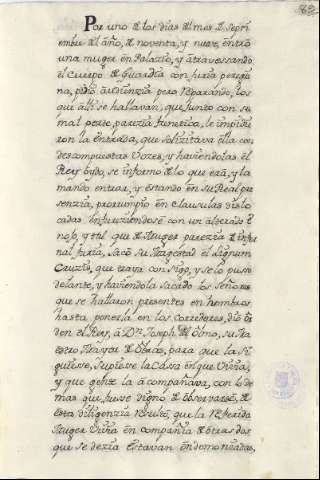 82
Por uno de los dias del mes de Septi
embre del año, de noventa, y nueve, entró
una muger en Palazio, y atravessando
el Cuerpo de Guardia con furia peregri
na, pidió audienzia pero reparando, los
que alli se hallavan, que junto con su
mal porte, parezia frenetica, le impidie
ron la entrada, que solizitava ella con
descompuestas Vozes, y haviendolas el
Rey oydo, se informo de lo que era, y la
mando entrar, y estando en su Real pre
senzia, prorrumpio en clausulas dislo
cadas enfureziendose con un alterado E
nojo, y tal que de Muger parezia de infer
nal furia, Sacó su Magestad el Lignum
Cruzis, que traya con sigo, y se lo puso
delante, y haviendola sacado los Señores
que se hallaron presentes en hombros
hasta ponerla en los corredores, dio or
den el Rey, a Dn. Joseph del Olmo, su Ma
estro Mayor de Obras, para que la si
guiesse, supiesse la Cassa en que Vivia,
y que gente la acompañava, con lo de
mas que fuesse digno de observarse, de
esta diligenzia resultó, que la referida
Muger Vivia en compañia de otras dos
que se dezia estavan endemoniadas,